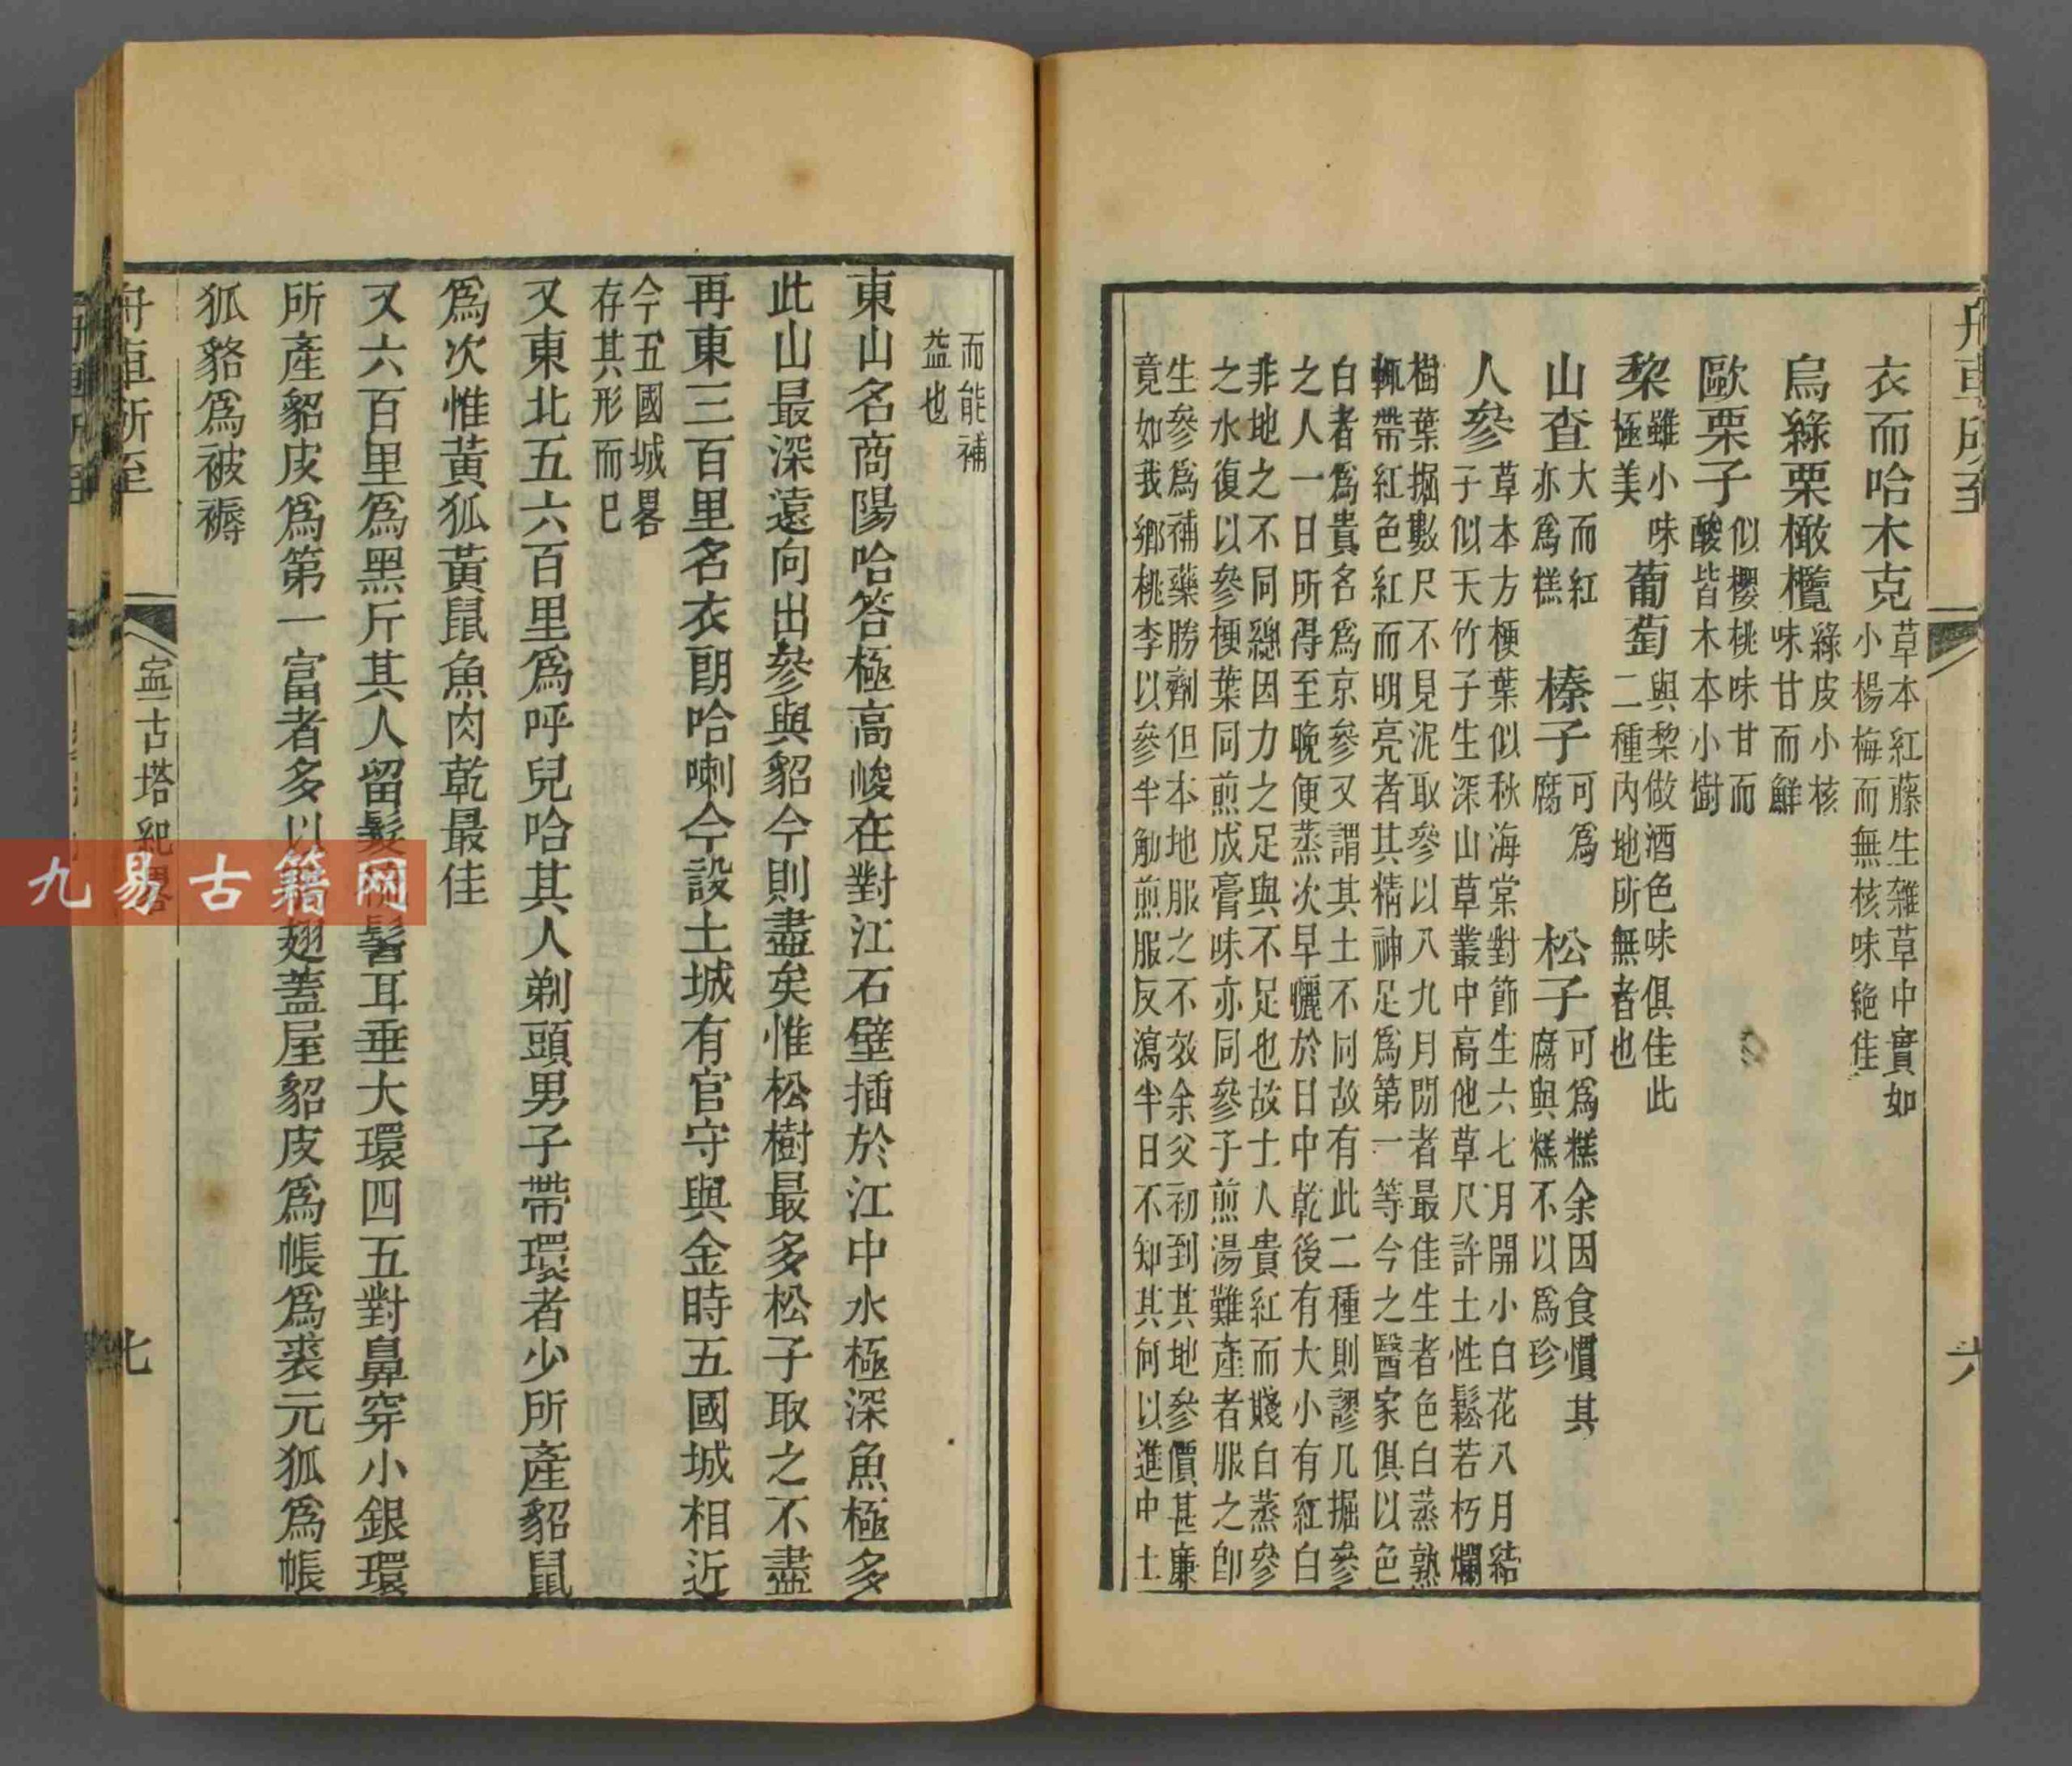 舟車所至
六
衣而哈木克
草本紅藤生雜草中實如
小楊梅而無核味絶佳
烏綠栗橄欖
綠皮小核
味甘而鮮
歐栗子
似櫻桃味甘而
酸皆木本小樹
棃
雖小味
極美
葡萄
與棃做酒色味俱佳此
二種內地所無者也
山查
大而紅
亦爲糕
榛子
可爲
腐
松子
可爲糕余因食慣其
腐與糕不以爲珍
人參
草本方梗葉似秋海棠對節生六七月開小白花八月結
子似天竹子子生深山草叢中高他草尺許土性鬆若朽爛
樹葉掘數尺不見泥取參以八九月閒者最佳生者色白蒸熟
輒帶紅色紅而明亮者其精神足爲第一等今之醫家俱以色
白者爲貴名爲京參又謂其土不同故有此二種則謬几掘參
之人一日所得至晚便蒸次早曬於日中乾後有大小有紅白
非地之不同總因力之足與不足也故土人貴紅而賤白蒸參
之水復以參梗葉同煎成膏味亦同參子煎湯難產者服之卽
生參爲補藥勝劑但本地服之不效余父初到其地參價甚廉
竟如我鄉桃李以參半觔煎服反瀉半日不知其何以進中土
而能補
益也
東山名商陽哈答極高峻在對江石壁插於江中水極深魚極多
此山最深遠向出參與貂今則盡矣惟松樹最多松子取之不盡
再東三百里名衣朗哈喇今設土城有官守與金時五國城相近
今五國城畧
存其形而已
又東北五六百里爲呼兒哈其人剃頭男子帶環者少所產貂鼠
爲次惟黃狐黃鼠魚肉乾最佳
又六百里爲黑斤其人留髮梳髻耳垂大環四五對鼻穿小銀環
所產貂皮爲第一富者多以翅蓋屋貂皮爲帳爲裘元狐爲帳
狐貉爲被褥
舟車所至
寍古塔紀畧
七
九易古籍网